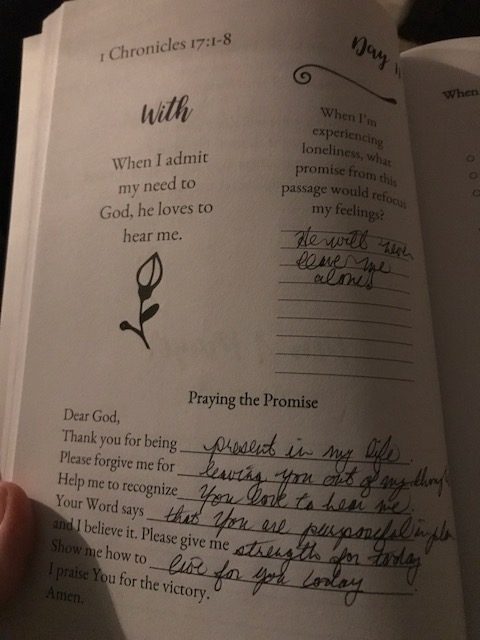 1 Chronicles 17:1-8
Day 11
With
When I admit
my need to
God, he loves to
hear me.
When I'm
experiencing
loneliness, what
promise from this
passage would refocus
my feelings?
He will never
leave me
alone
Praying the Promise
Dear God,
Thank you for being present in my life.
Please forgive me for leaving you out of my
Help me to recognize You love to hear me.
Your Word says that You are purposeful in
and I believe it. Please give me strength for today
Show me how to live for you today.
I praise You for the victory.
Amen.
When